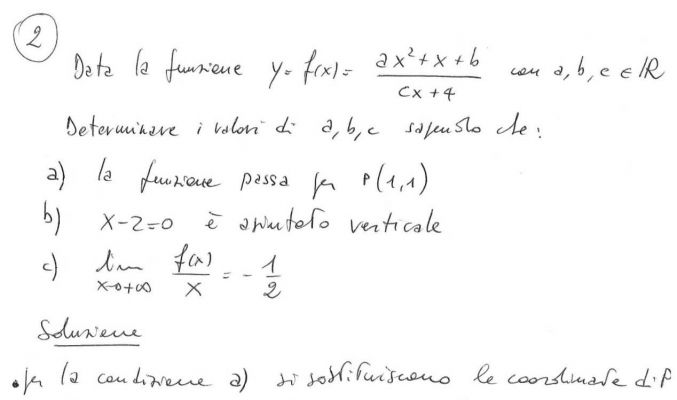 2
Data la funzione y = f(x) = (ax² + x + b)/(cx + 4) con a, b, c ∈ ℝ
Determinare i valori di a, b, c sapendo che:
a) la funzione passa per P(1,1)
b) x-2=0 è asintoto verticale
c) lim x→+∞ f(x)/x = -1/2
Soluzione
• per la condizione a) si sostituiscono le coordinate di P